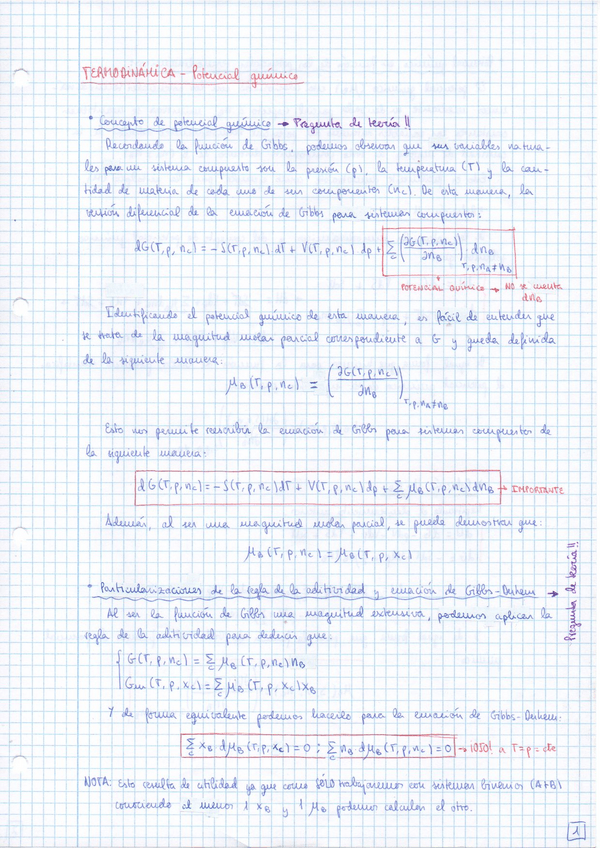 TERMODINÁMICA - Potencial químico
* Concepto de potencial químico → Pregunta de teoría!!
Recordando la función de Gibbs, podemos observar que sus variables natura-
les para un sistema compuesto son la presión (p), la temperatura (T) y la can-
tidad de materia de cada uno de sus componentes (nc). De esta manera, la
versión diferencial de la ecuación de Gibbs para sistemas compuestos:
dG(T, p, nc) = -S(T, p, nc) dT + V(T, p, nc) dp + Σc (∂G(T, p, nc)/∂nB)T, p, nA≠nB dnB
POTENCIAL QUÍMICO → NO se cuenta
dnB
Identificando el potencial químico de esta manera, es fácil de entender que
se trata de la magnitud molar parcial correspondiente a G y queda definida
de la siguiente manera:
μB(T, p, nc) = (∂G(T, p, nc)/∂nB)T, p, nA≠nB
Esto nos permite reescribir la ecuación de Gibbs para sistemas compuestos de
la siguiente manera:
dG(T, p, nc) = -S(T, p, nc) dT + V(T, p, nc) dp + Σc μB(T, p, nc) dnB → IMPORTANTE
Además, al ser una magnitud molar parcial, se puede demostrar que:
μB(T, p, nc) = μB(T, p, xc)
* Particularizaciones de la regla de la aditividad y ecuación de Gibbs-Duhem → Pregunta de teoría!!
Al ser la función de Gibbs una magnitud extensiva, podemos aplicar la
regla de la aditividad para deducir que:
G(T, p, nc) = Σc μB(T, p, nc) nB
Gm(T, p, xc) = Σc μB(T, p, xc) xB
Y de forma equivalente podemos hacerlo para la ecuación de Gibbs-Duhem:
Σc xB dμB(T, p, xc) = 0 ; Σc nB dμB(T, p, nc) = 0 → ¡OJO! a T = p = cte
NOTA: Esto resulta de utilidad ya que como SÓLO trabajaremos con sistemas binarios (A+B)
conociendo al menos 1 xB y 1 μB podemos calcular el otro.
1